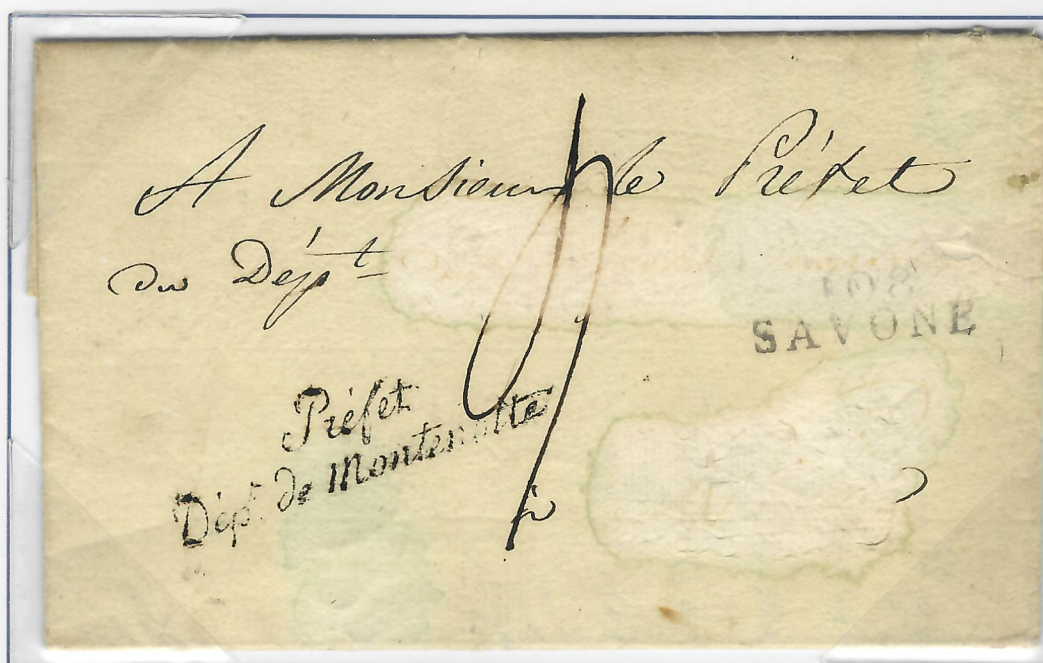 A Monsieur le Préfet
du Dépt
108
SAVONE
Préfet
Dépt. de Montenotte
à